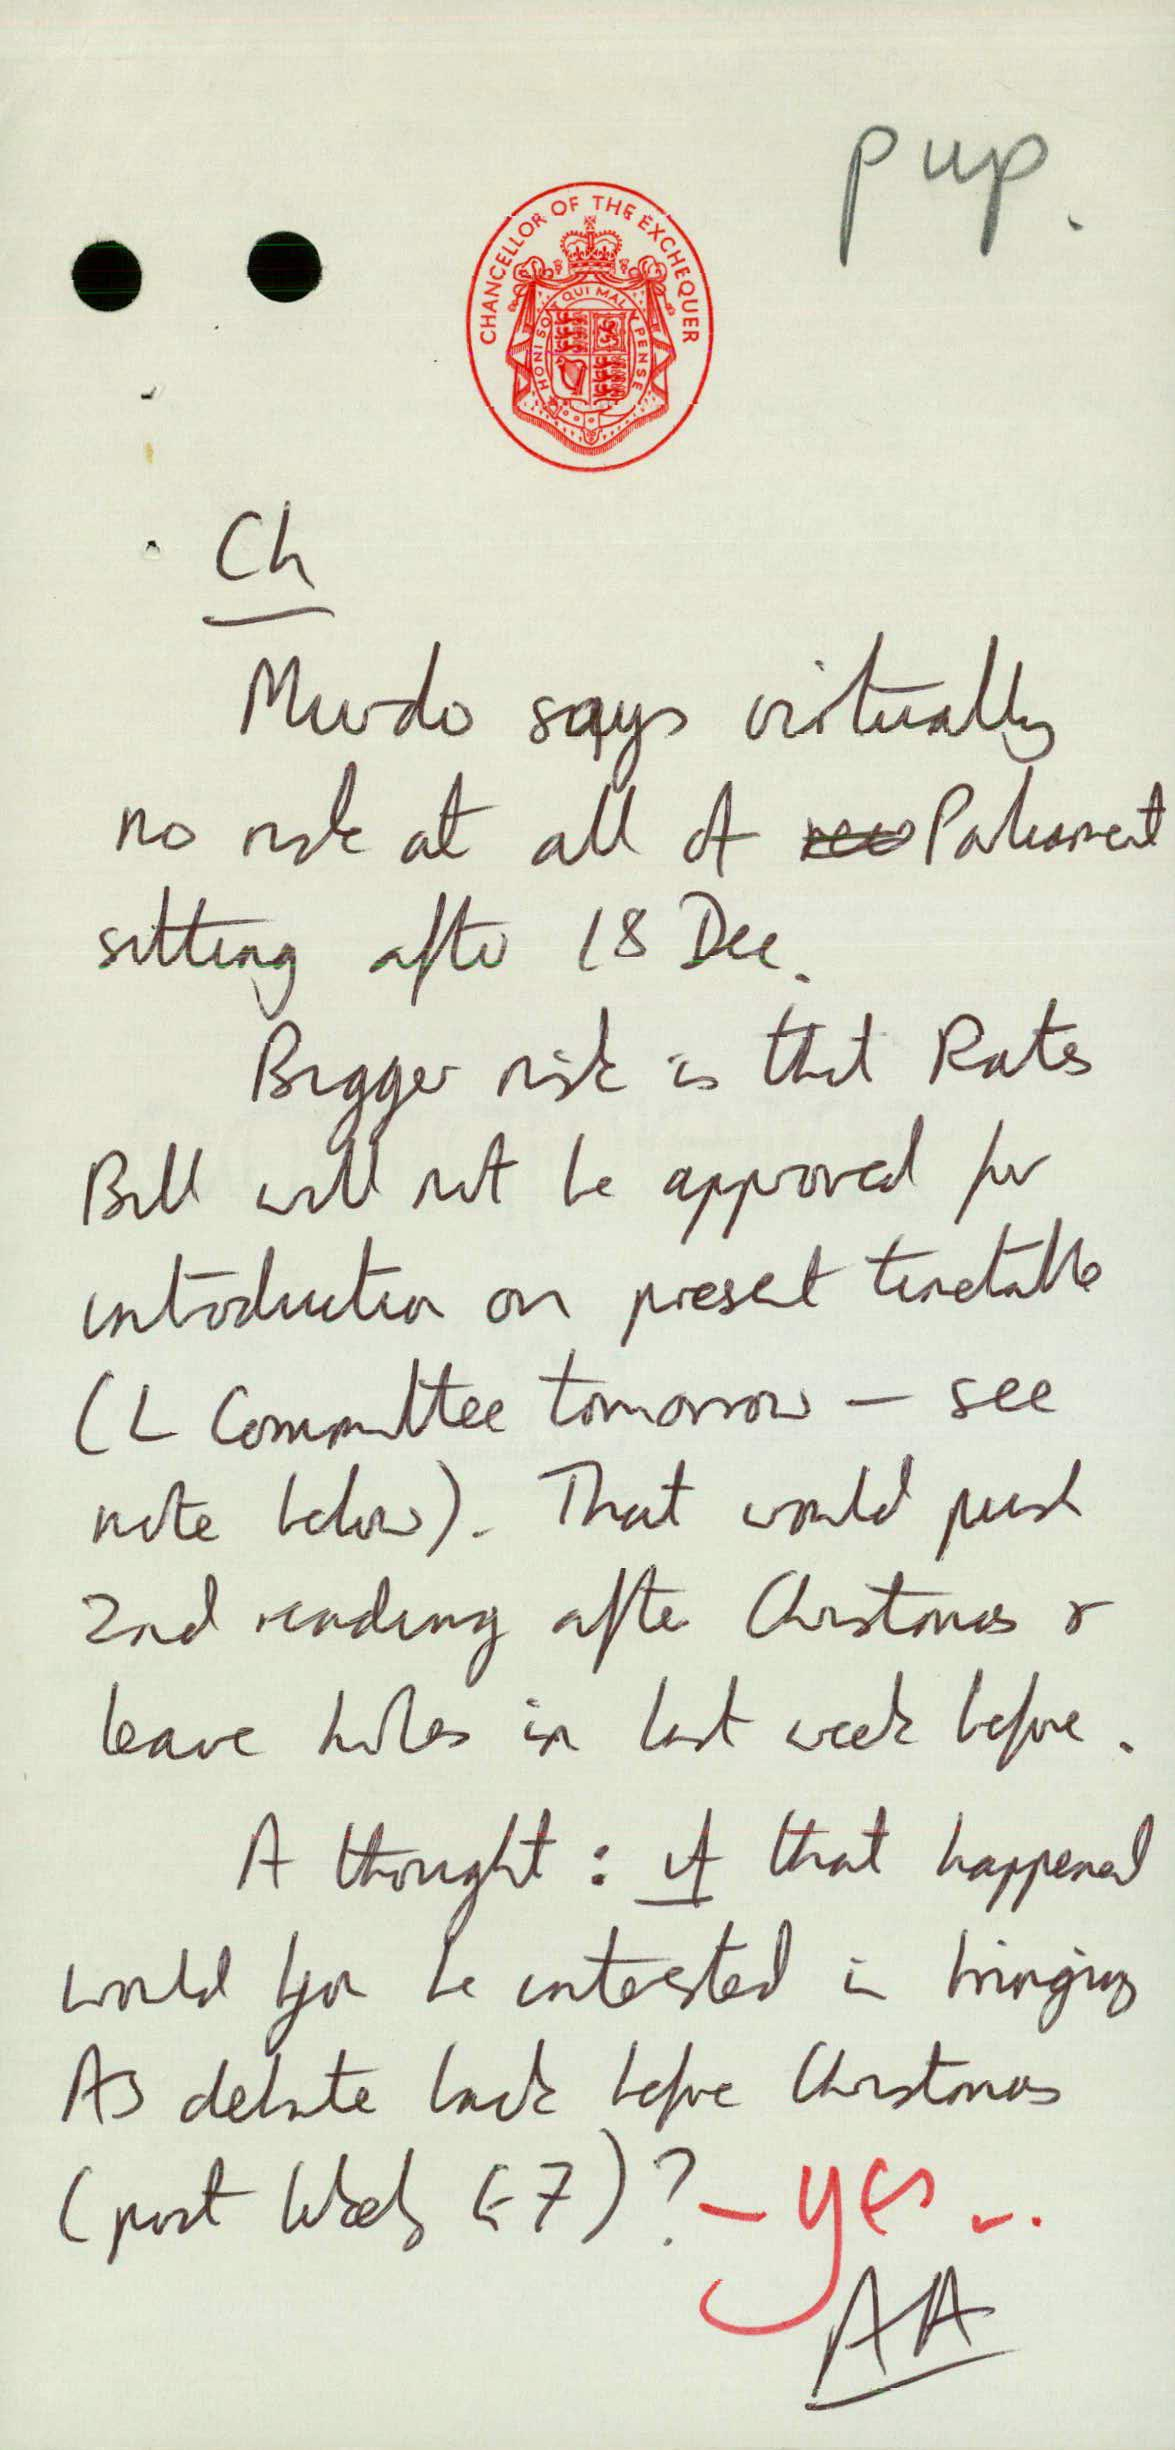 pup.
CHANCELLOR OF THE EXCHEQUER
HONI SOIT QUI MAL Y PENSE
Ch
Murdo says virtually
no risk at all of Parliament
sitting after 18 Dec.
Bigger risk is that Rates
Bill will not be approved for
introduction on present timetable
(L Committee tomorrow – see
note below). That would push
2nd reading after Christmas &
leave holes in last week before.
A thought : if that happened
would you be interested in bringing
AS debate back before Christmas
(post likely G7)? – yes
AA